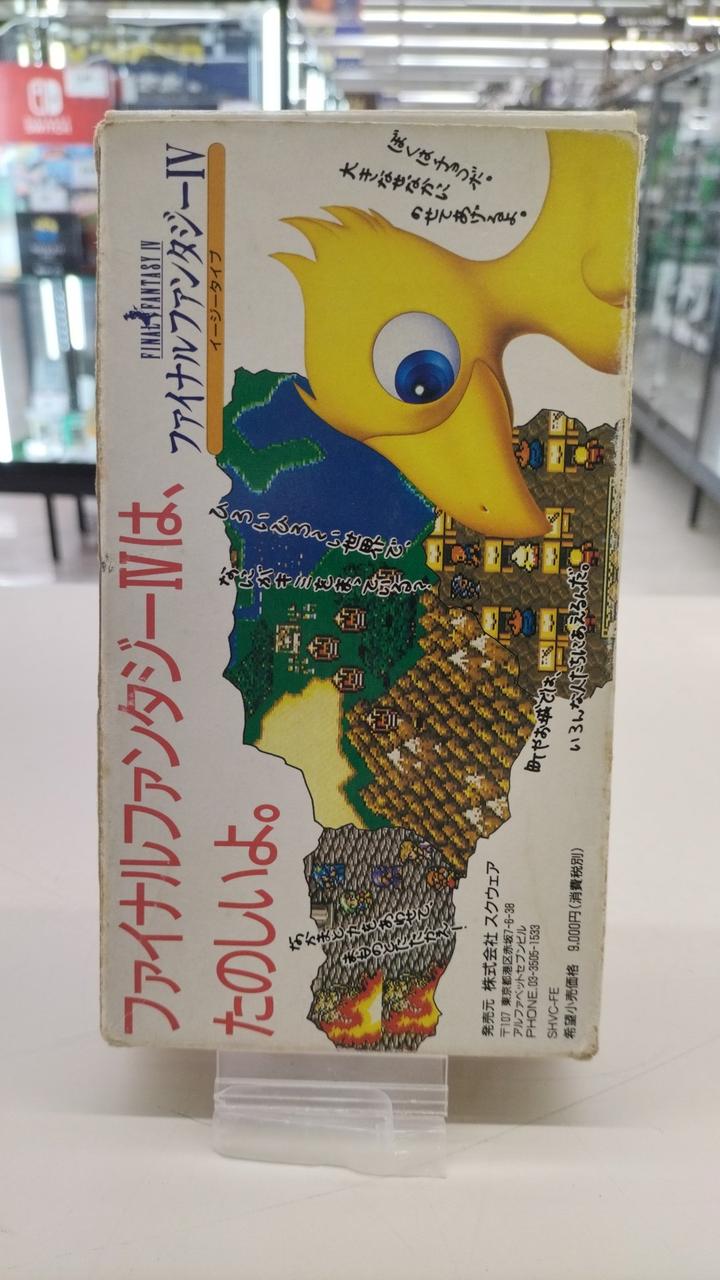 FINAL FANTASY IV
ファイナルファンタジーIV
イージータイプ
ぼくはチョコボ。
大きなせなかに
のせてあげるよ。
ファイナルファンタジーIVは、
たのしいよ。
ひろいひろ〜い世界で、
なにがキミをまっている?
町やお城では、
いろんな人たちにあえるんだ。
なかまと力をあわせて、
まものとたたかえ!
発売元 株式会社 スクウェア
〒107 東京都港区赤坂7-6-38
アルファベットセブンビル
PHONE.03-3505-1533
SHVC-FE
希望小売価格 9,000円(消費税別)
SWITCH